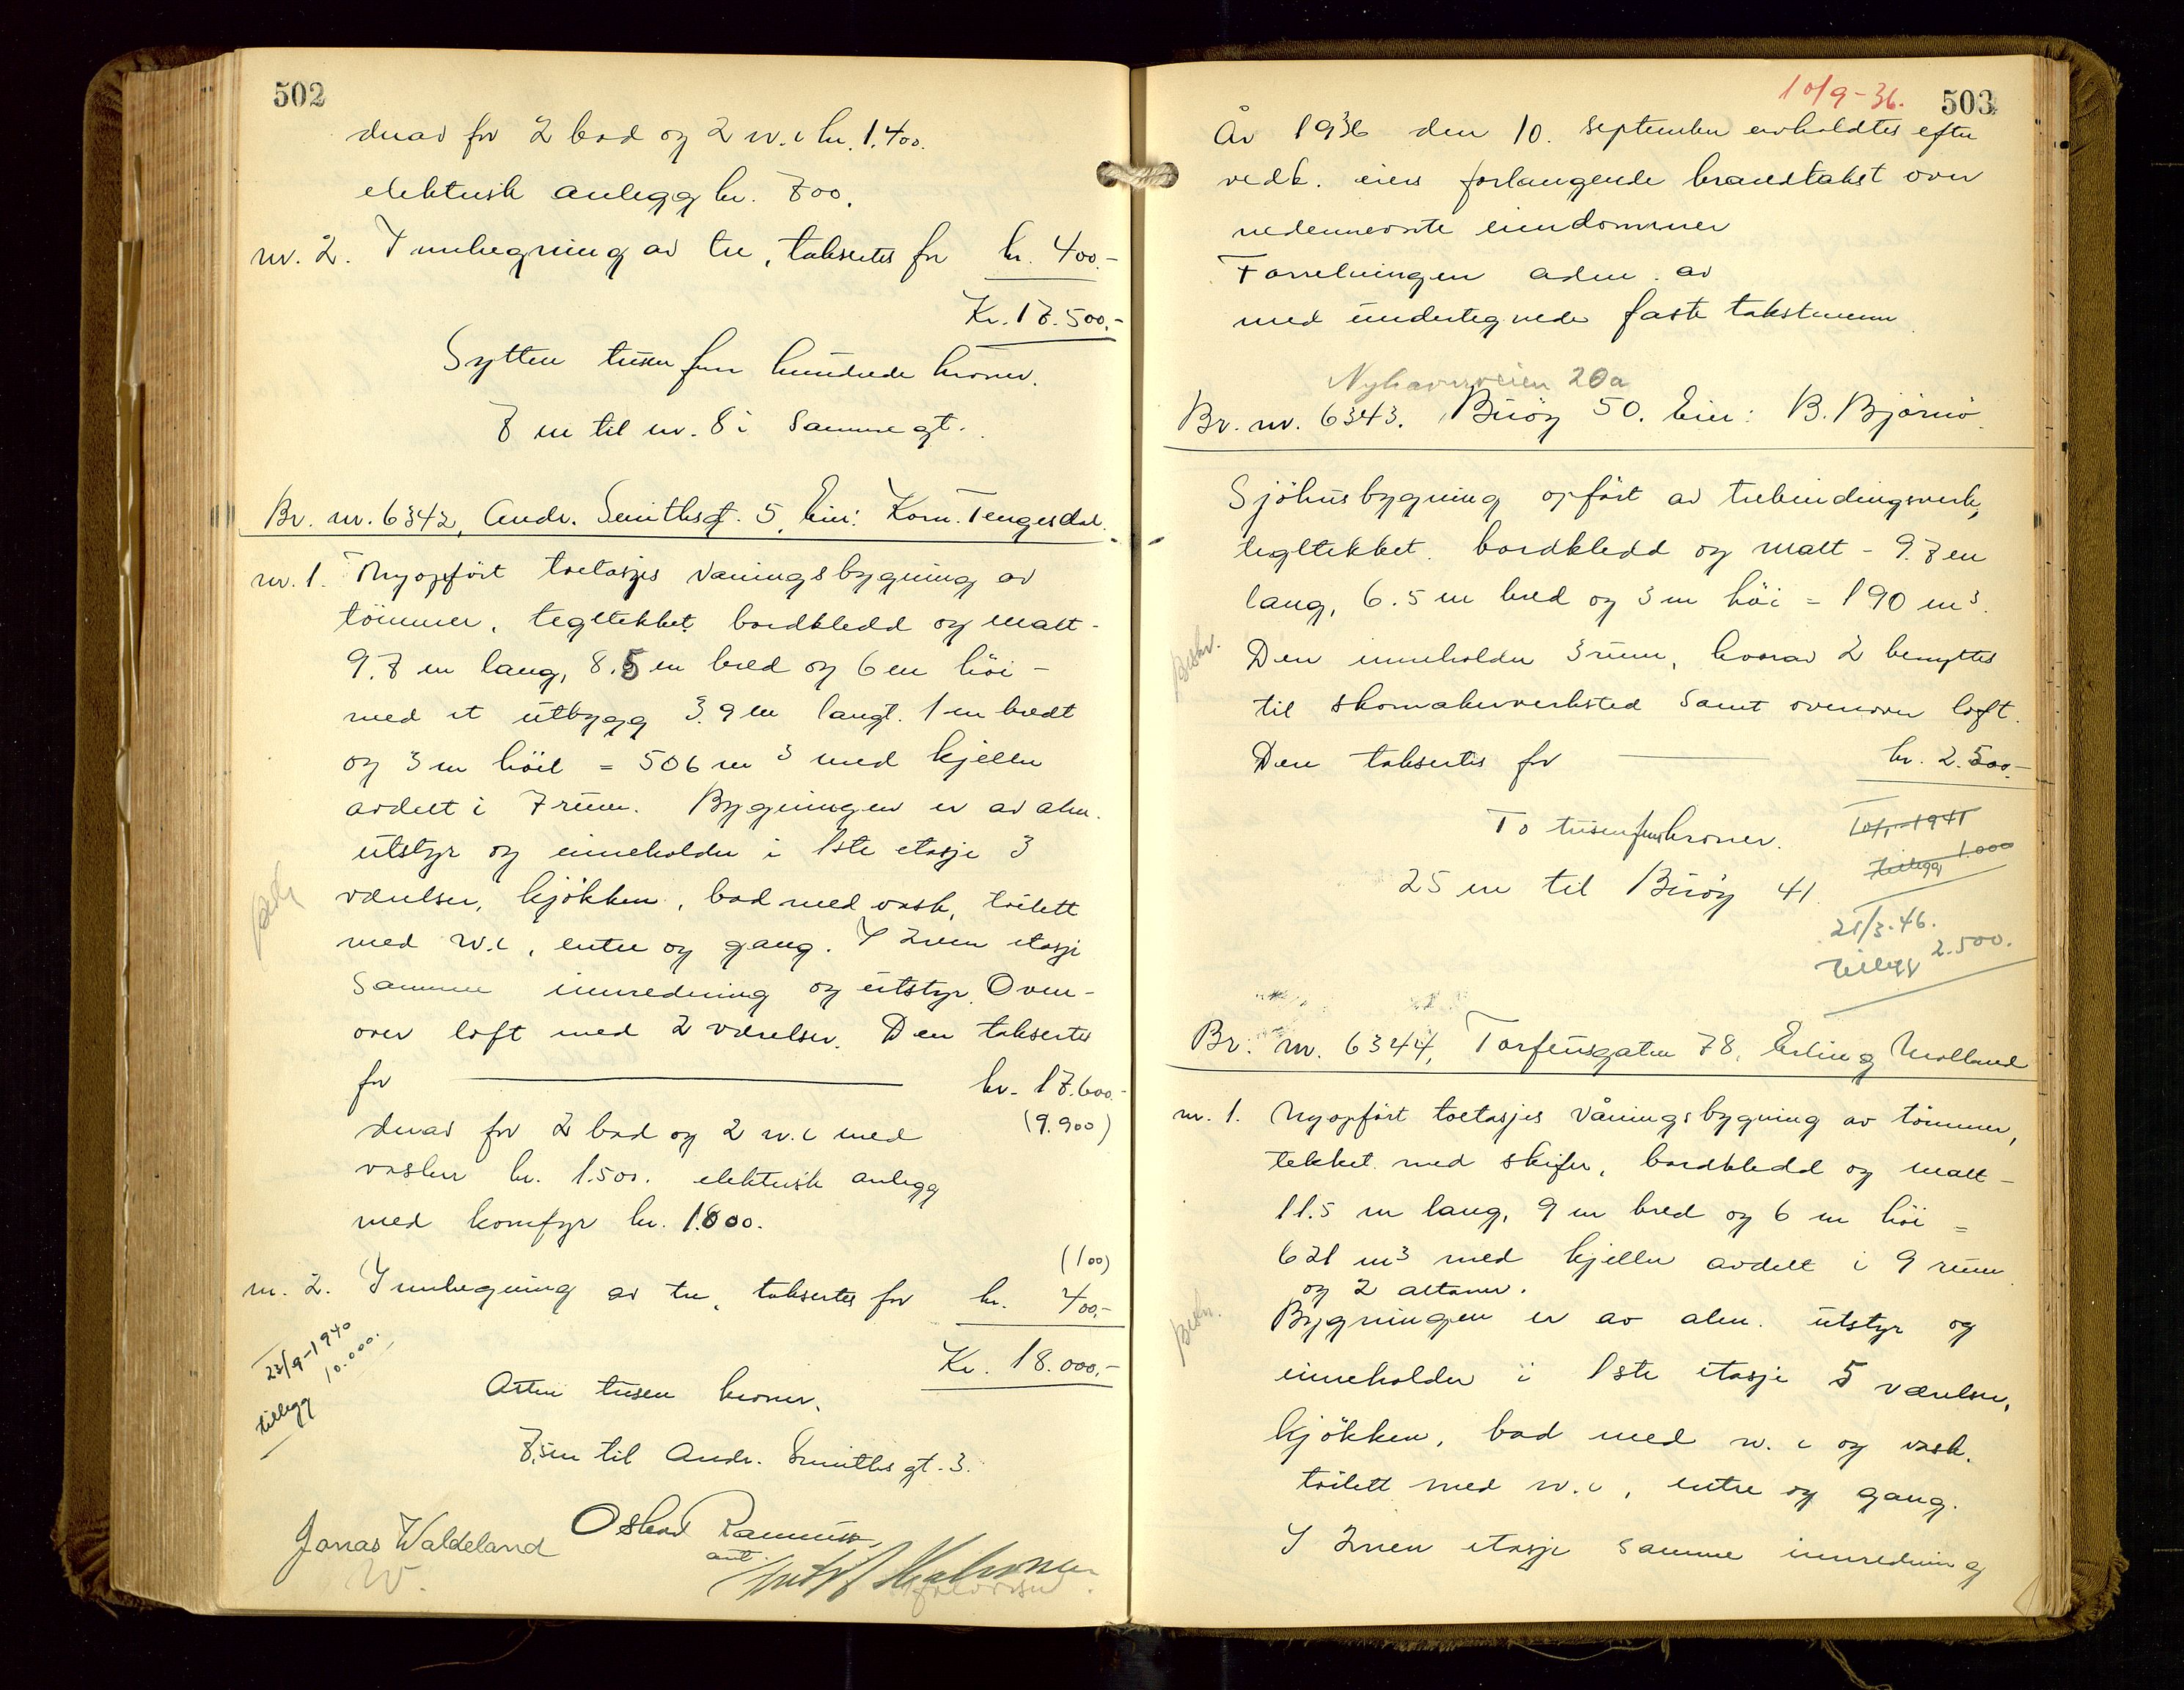 502
derav for 2 bad og 2 w.c kr. 1.400.
elektrisk anlegg kr. 700.
nr. 2. Innhegning av tre, takseres for kr. 400.-
Kr. 17.500.-
Sytten tusen fem hundrede kroner.
7 m til nr. 8 i samme gt.
Br. nr. 6342, Andr. Smithsgt. 5, Eier: Korn. Tengesdal.
nr. 1. Nyopført toetasjes våningsbygning av
tömmer, tegltekket bordkledd og malt -
9.7 m lang, 8.5 m bred og 6 m höi -
med et utbygg 3.9 m langt. 1 m bredt
og 3 m höit = 506 m³ med kjeller
avdelt i 7 rum. Bygningen er av alm.
utstyr og inneholder i 1ste etasje 3
værelser, kjökken, bad med vask, toilett
med w.c, entre og gang. I 2nen etasje
samme innredning og utstyr. Oven-
over loft med 2 værelser. Den takseres
for kr. 17.600.-
(9.900)
derav for 2 bad og 2 w.c med
vasker kr. 1.500. elektrisk anlegg
med komfyr kr. 1.000.
(100)
nr. 2. Innhegning av tre, takseres for kr. 400.-
Kr. 18.000.-
23/9-1940
tillegg 10.000.
Atten tusen kroner.
7.5 m til Andr. Smiths gt. 3.
Jonas Waldeland Oskar Rasmussen
ant.
W.
10/9-36. 503
År 1936 den 10. september avholdtes efter
vedk. eiers forlangende brandtakst over
nedennevnte eiendommer
Forretningen adm. av
med undertegnede faste takstmenn
Nyhavnveien 20a
Br. nr. 6343. Buöy 50. Eier: B. Bjørnö.
Sjöhusbygning opfört av trebindingsverk,
tegltekket. bordkledd og malt - 9.7 m
lang, 6.5 m bred og 3 m höi = 190 m³.
Beskr.
Den inneholder 3 rum, hvorav 2 benyttes
til skomakerverksted samt ovenover loft.
Den takseres for kr. 2.500.-
To tusen fem kroner.
10/1-1941
tillegg 1.000
25 m til Buöy 41.
21/3.46.
tillegg 2.500.
Br. nr. 6344, Torfeusgaten 78, Erling Molland
nr. 1. Nyopfört toetasjes våningsbygning av tömmer,
tekket med skifer, bordkledd og malt -
11.5 m lang, 9 m bred og 6 m höi =
621 m³ med kjeller avdelt i 9 rum
og 2 altaner.
Beskr.
Bygningen er av alm. utstyr og
inneholder i 1ste etasje 5 værelser,
kjökken, bad med w.c og vask,
toilett med w.c, entre og gang.
I 2nen etasje samme innredning